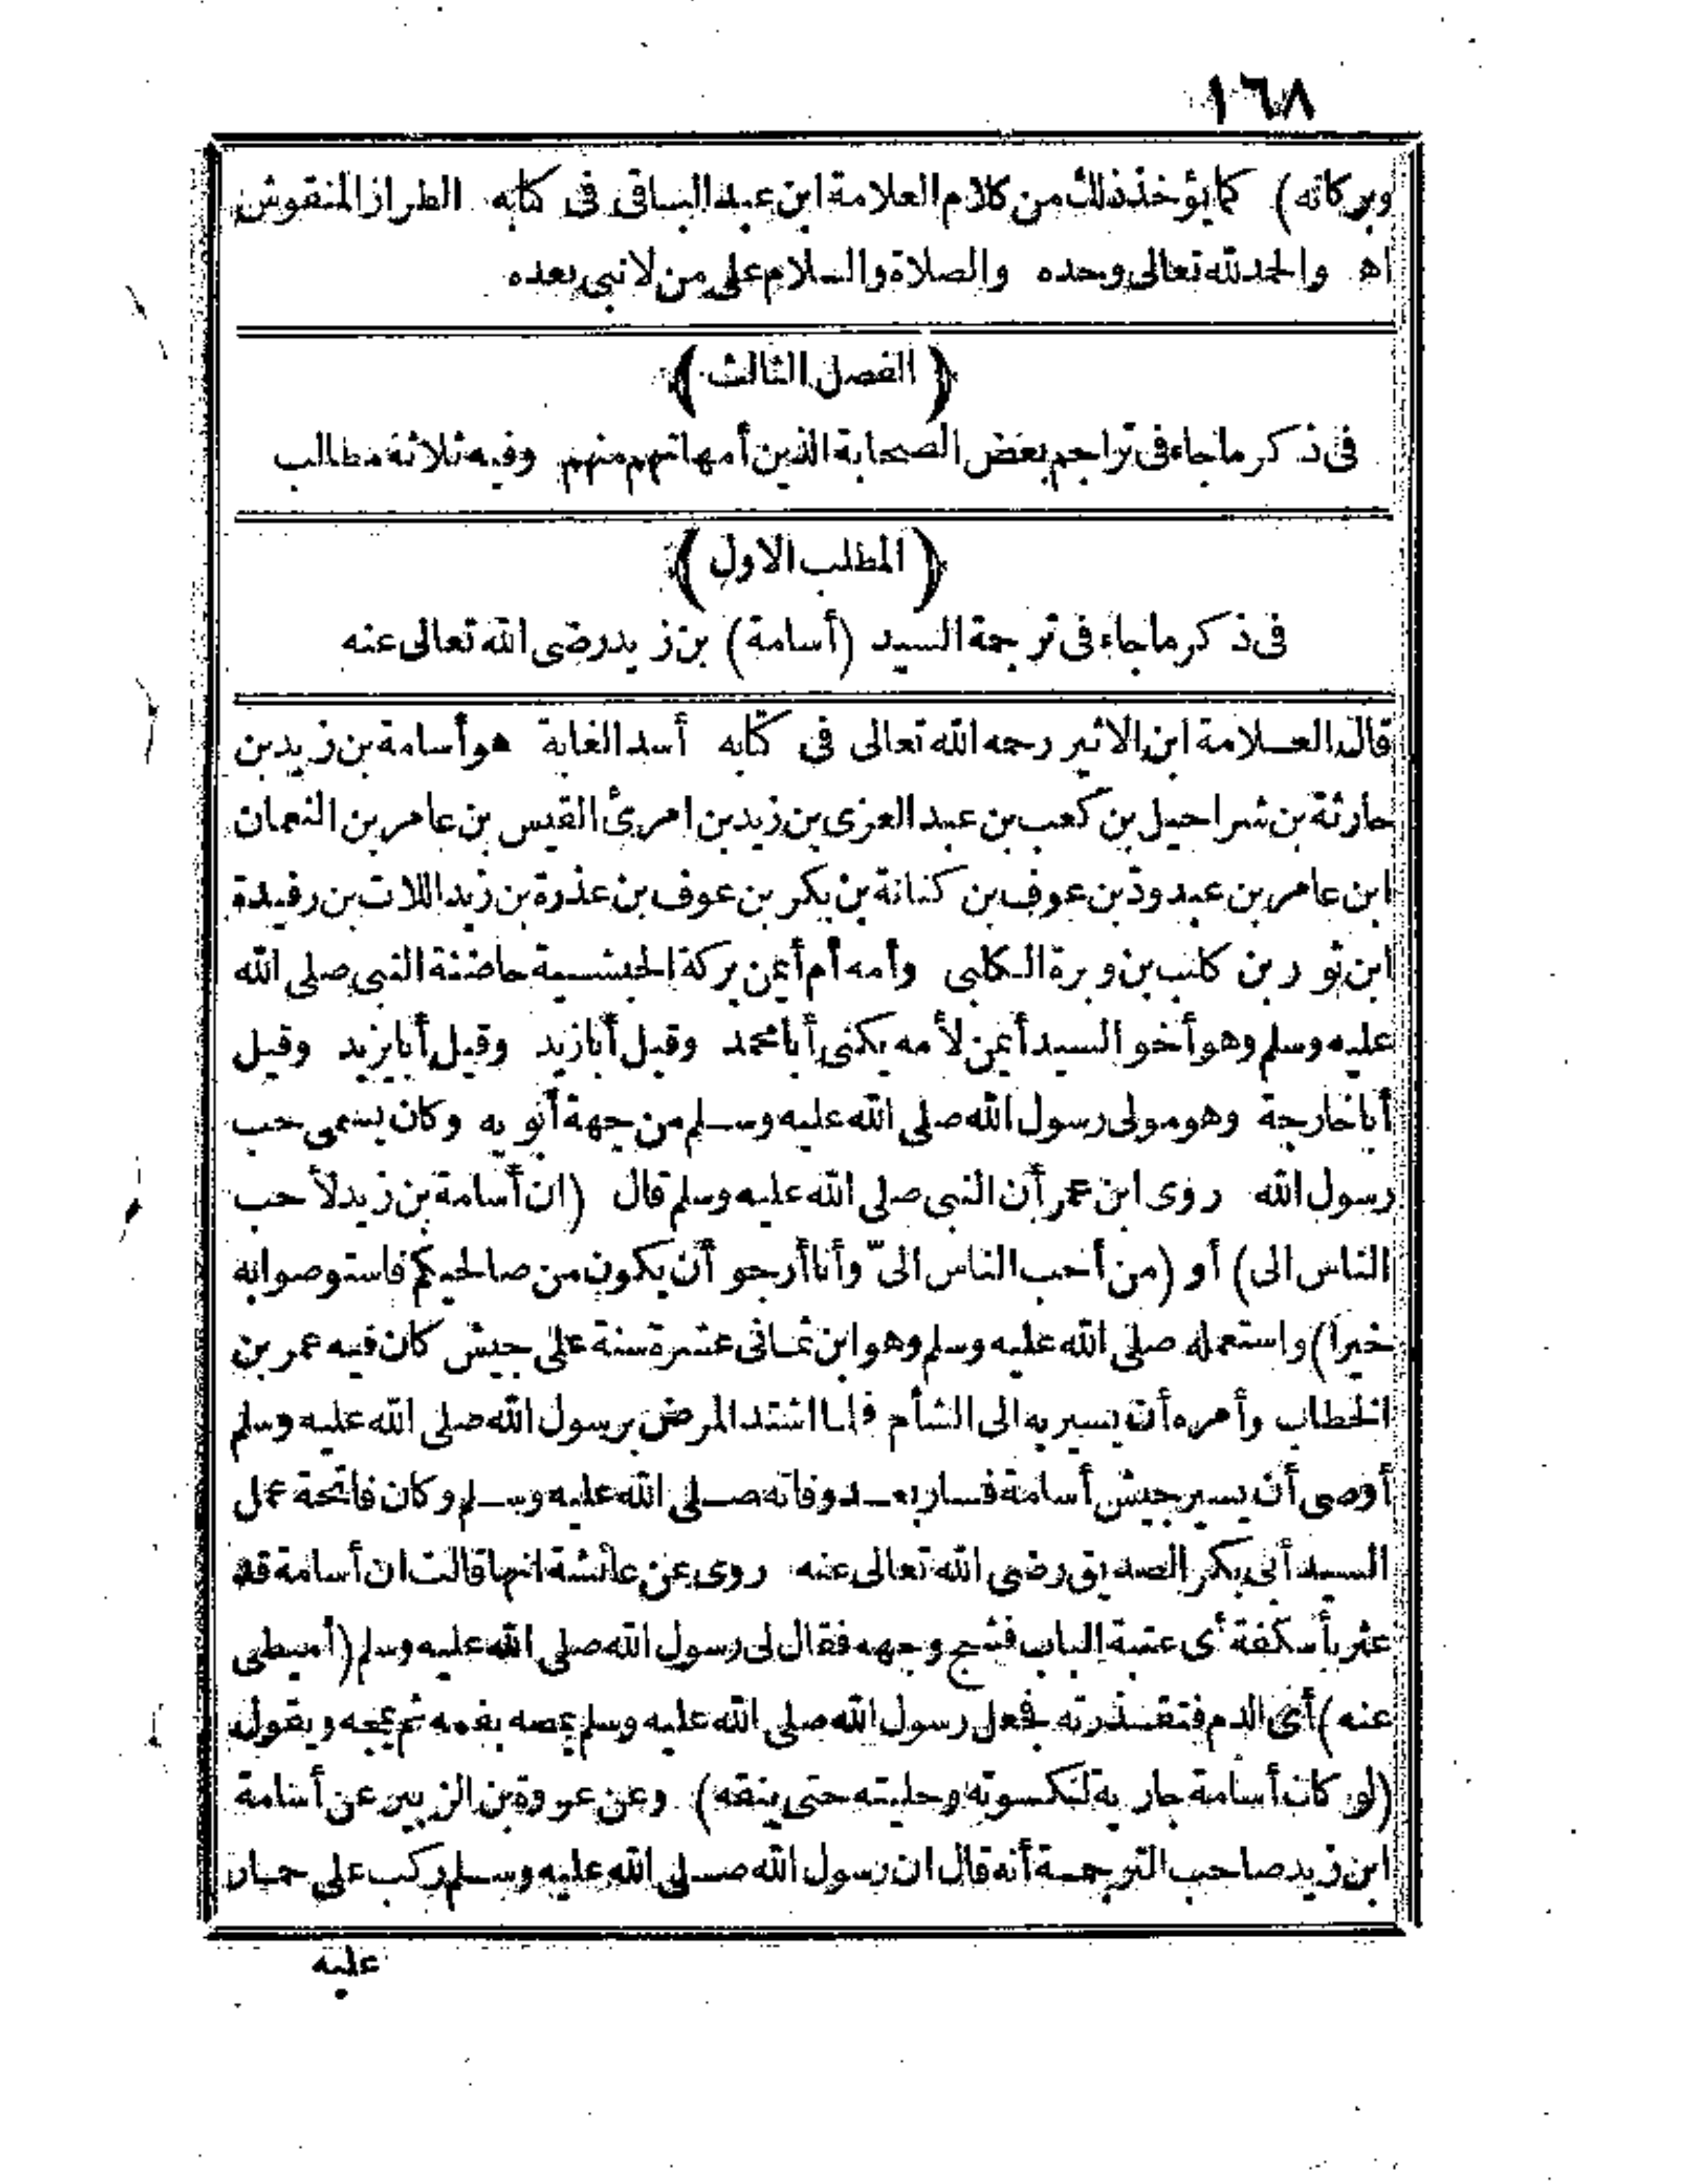 ١٦٨
وبركاته) كما يؤخذ ذلك من كلام العلامة ابن عبد الباقى فى كتابه الطراز المنقوش
اه والحمد لله تعالى وحده والصلاة والسلام على من لا نبى بعده
(الفصل الثالث)
فى ذكر ما جاء فى تراجم بعض الصحابة الذين أمهاتهم منهم وفيه ثلاثة مطالب
(المطلب الاول)
فى ذكر ما جاء فى ترجمة السيد (أسامة) بن زيد رضى الله تعالى عنه
قال العلامة ابن الاثير رحمه الله تعالى فى كتابه أسد الغابة هو أسامة بن زيد بن
حارثة بن شراحيل بن كعب بن عبد العزى بن زيد بن امرئ القيس بن عامر بن النعمان
ابن عامر بن عبد ود بن عوف بن كنانة بن بكر بن عوف بن عذرة بن زيد اللات بن رفيدة
ابن ثور بن كلب بن وبرة الكلبى وأمه أم أيمن بركة الحبشية حاضنة النبى صلى الله
عليه وسلم وهو أخو السيد أيمن لأمه يكنى أبا محمد وقيل أبا زيد وقيل أبا يزيد وقيل
أبا خارجة وهو مولى رسول الله صلى الله عليه وسلم من جهة أبويه وكان يسمى حب
رسول الله روى ابن عمر أن النبى صلى الله عليه وسلم قال (ان أسامة بن زيد لأحب
الناس الى) أو (من أحب الناس الىّ وأنا أرجو أن يكون من صالحيكم فاستوصوا به
خيرا) واستعمله صلى الله عليه وسلم وهو ابن ثمانى عشرة سنة على جيش كان فيه عمر بن
الخطاب وأمره أن يسير به الى الشأم فلما اشتد المرض برسول الله صلى الله عليه وسلم
أوصى أن يسير جيش أسامة فسار بعد وفاته صلى الله عليه وسلم وكان فاتحة عمل
السيد أبى بكر الصديق رضى الله تعالى عنه روى عن عائشة انها قالت ان أسامة قد
عثر بأسكفة أى عتبة الباب فشج وجهه فقال لى رسول الله صلى الله عليه وسلم (أميطى
عنه) أى الدم فتقذرته فجعل رسول الله صلى الله عليه وسلم يمصه بفمه ثم يمجه ويقول
(لو كان أسامة جارية لكسوته وحليته حتى ينفقه) وعن عروة بن الزبير عن أسامة
ابن زيد صاحب الترجمة أنه قال ان رسول الله صلى الله عليه وسلم ركب على حمار
عليه